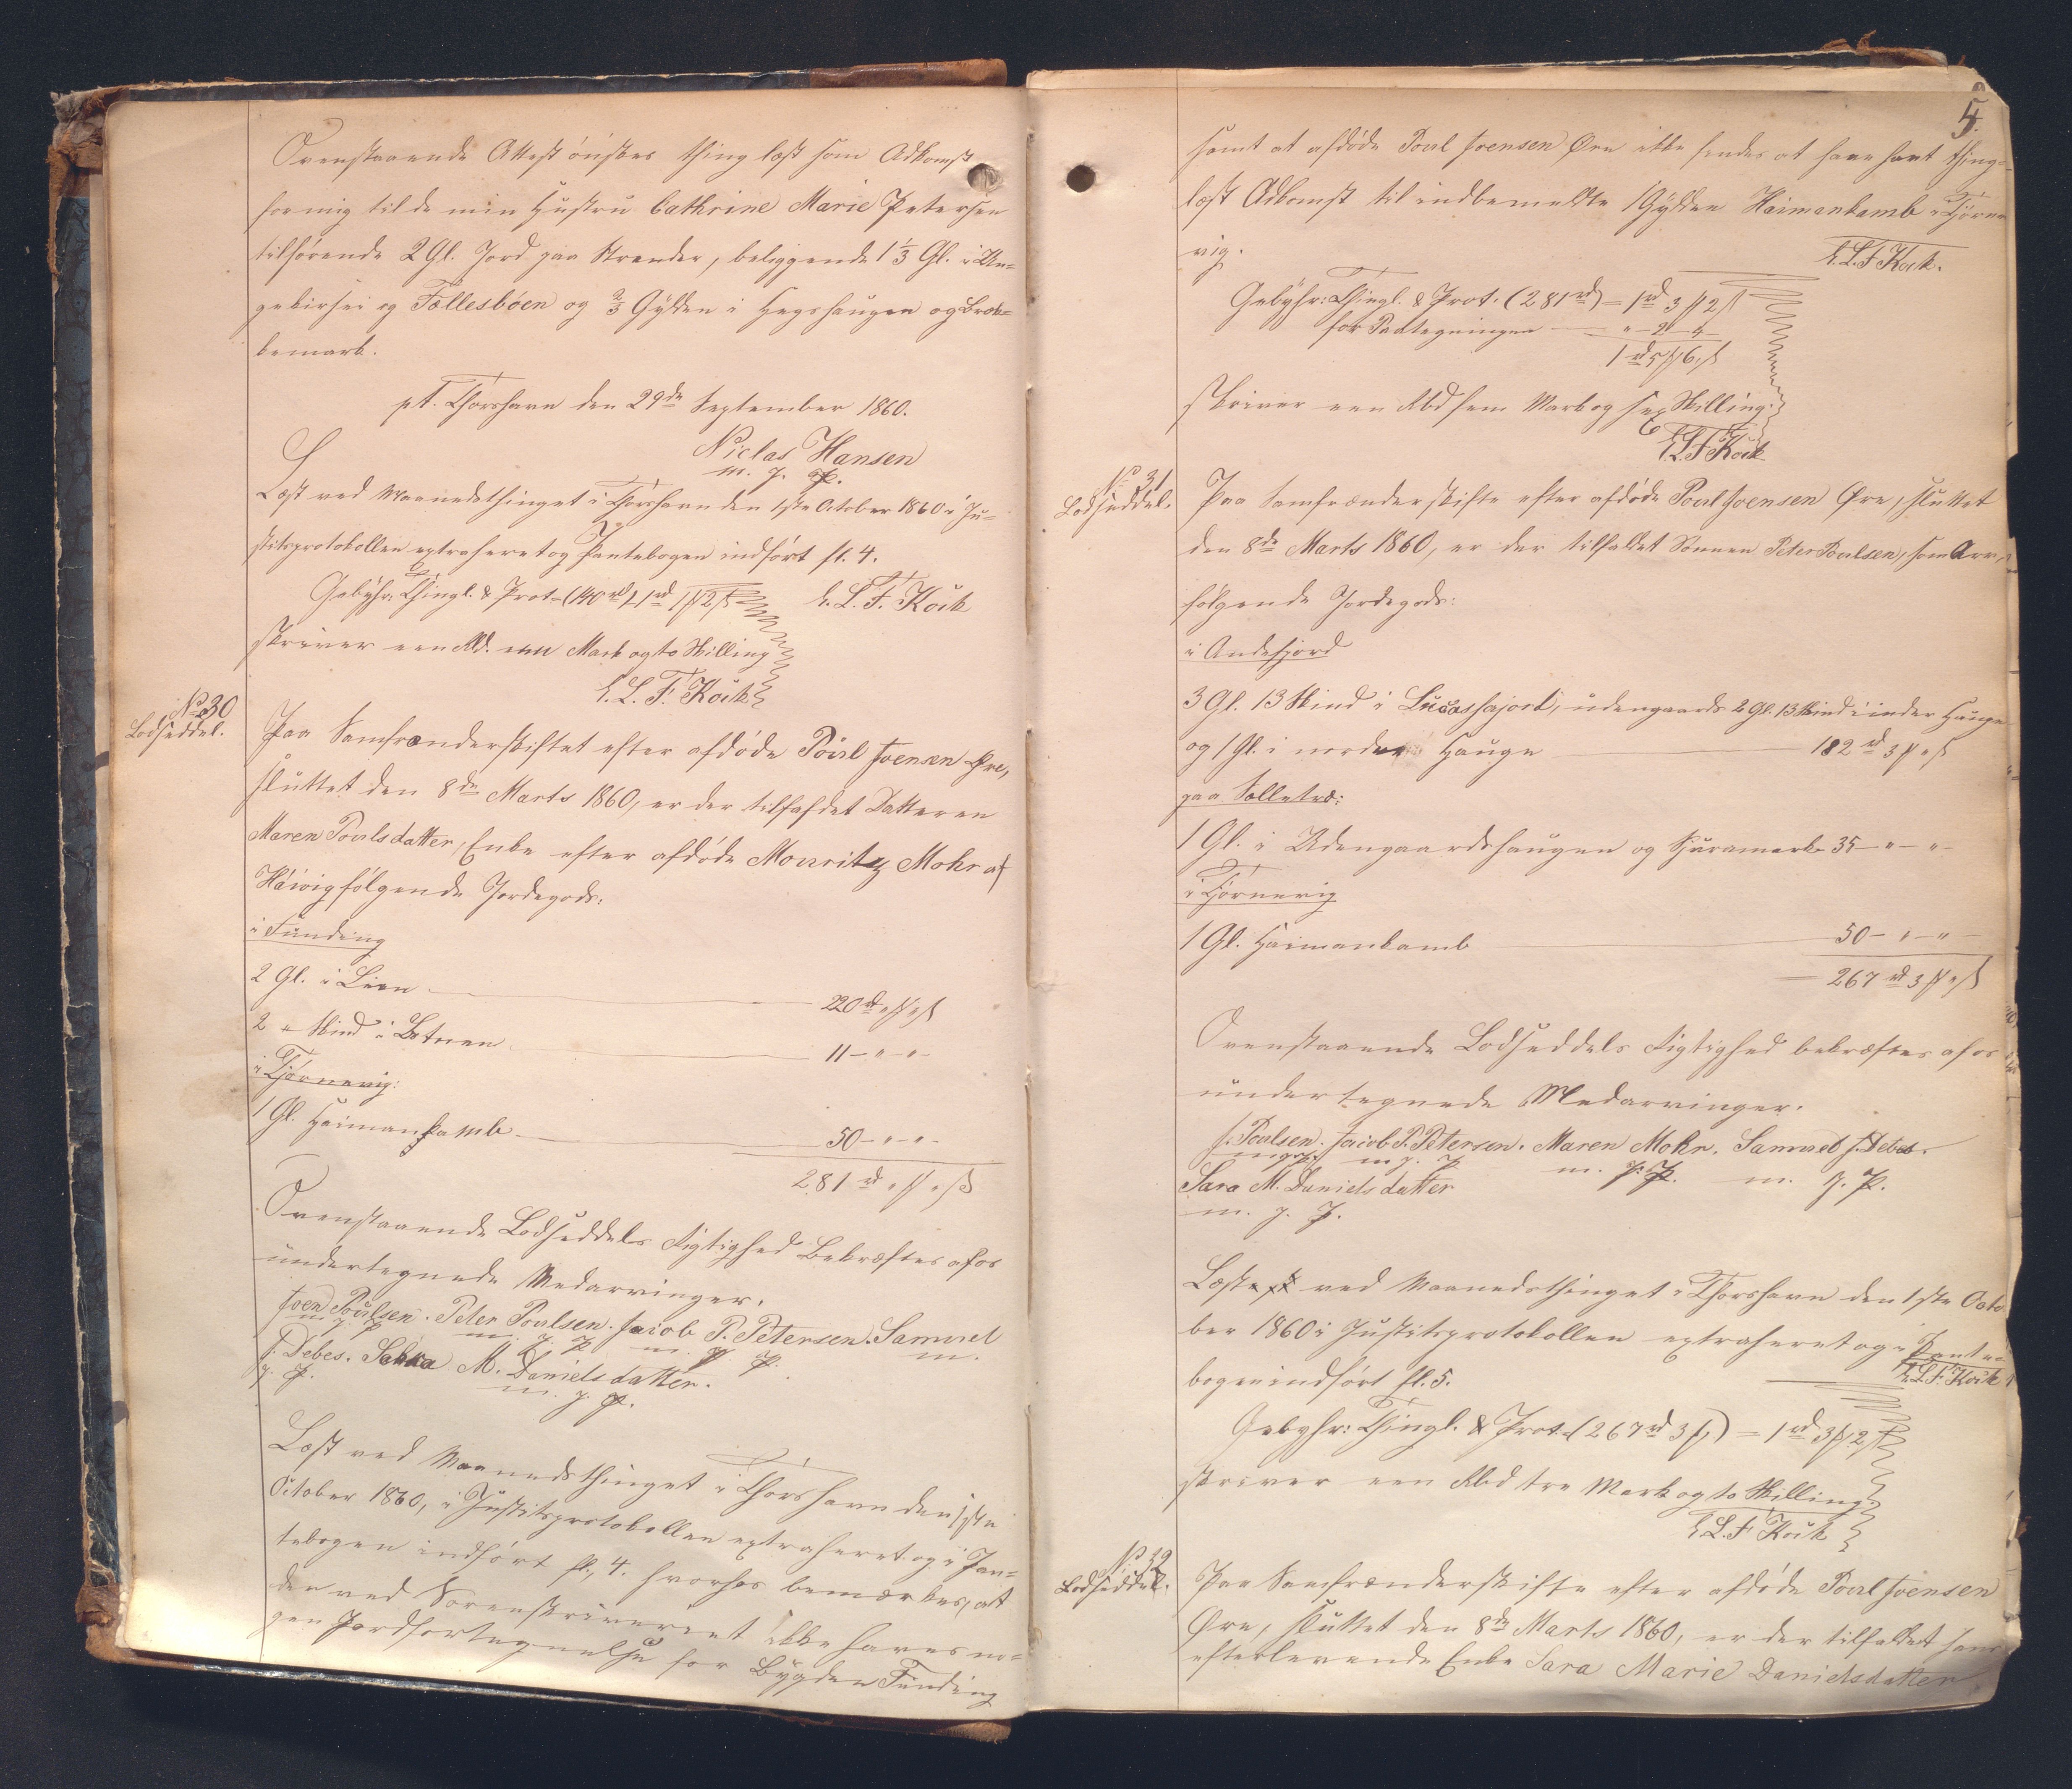 Ovenstaaende Attest önskes thinglæst som Adkomst
for mig til de min Hustru Cathrine Marie Petersen
tilhörende 2 Gl. Jord paa Strender, beliggende 1 1/3 Gl. i Un-
gekirsei og Fællesböen og 2/3 Gylden i Hegshaugen og Brek-
kemark.
pt. Thorshavn den 29de September 1860.
Niclas Hansen
m. p. P.
Læst ved Maanedsthinget i Thorshavn den 1ste October 1860 i Ju-
stitsprotokollen extraheret og i Pantebogen indfört fl. 4.
Gebyhr: Thingl. & Prot. (140 rd) 1 rd 1 ₻ 2 ß H. L. F. Kock
skriver een Rbd. een Mark og to Skilling
H. L. F. Kock
No 30
Lodseddel.
Paa Samfrænderskiftet efter afdöde Poul Joensen Öre,
sluttet den 8de Marts 1860, er der tilfaldet Datteren
Maren Poulsdatter, Enke efter afdöde Mouritz Mohr af
Hóivig fölgende Jordegods:
i Funding
2 Gl. i Lien 220 rd " ₻ " ß
2 " Skind i Botnen 11 - " - " -
i Tjörnevig:
1 Gl. Heimankamb 50 - " - " -
281 rd " ₻ " ß
Ovenstaaende Lodseddels Rigtighed bekræftes af os
undertegnede Medarvinger.
Joen Poulsen. Peter Poulsen. Jacob P. Petersen. Samuel
m. p. P. m. p. P. m. p. P. m.
J. Debes. Sara M. Danielsdatter.
p. P. m. p. P.
Læst ved Maanedsthinget i Thorshavn den 1ste
October 1860, i Justitsprotokollen extraheret og i Pan-
tebogen indfört fl. 4. hvorhos bemærkes, at
der ved Sorenskriveriet ikke haves no-
gen Jordfortegnelse for Bygden Funding
5.
samt at afdöde Poul Joensen Öre ikke sees at have havt thing-
læst Adkomst til indbemeldte 1 Gylden Haimankamb i Tjörne-
vig.
H. L. F. Kock.
Gebyhr: Thingl. & Prot. (281 rd) = 1 rd 3 ₻ 2 ß
for Paategningen " - 2 - 4 -
1 rd 5 ₻ 6 ß
skriver een Rbd fem Mark og sex Skilling.
H. L. F. Kock
No 31
Lodseddel.
Paa Samfrænderskifte efter afdöde Poul Joensen Öre, sluttet
den 8de Marts 1860, er der tilfaldet Sönnen Peter Poulsen, som Arv,
fölgende Jordegods:
i Andefjord
3 Gl. 13 Skind i Lucashajord, udengaards 2 Gl. 13 Skind i inder Hauge
og 1 Gl. i norder Hauge 182 rd 3 ₻ " ß
paa Selletræ:
1 Gl. i Udengaardshaugen og Sjuramark 35 - " - " -
i Tjörnevig
1 Gl. Haimankamb 50 - " - " -
267 rd 3 ₻ " ß
Ovenstaaende Lodseddels Rigtighed bekræftes af os
undertegnede Medarvinger.
J. Poulsen. Jacob P. Petersen. Maren Mohr. Samuel J. Debes.
m. p. P. m. p. P. m. p. P. m. p. P.
Sara M. Danielsdatter
m. p. P.
Læst ved Maanedsthinget i Thorshavn den 1ste Octo-
ber 1860 i Justitsprotokollen extraheret og i Pante-
bogen indfört fl. 5. H. L. F. Kock
Gebyhr: Thingl. & Prot. (267 rd 3 ₻) = 1 rd 3 ₻ 2 ß
skriver een Rbd tre Mark og to Skilling.
H. L. F. Kock
No 32
Lodseddel.
Paa Samfrænderskifte efter afdöde Poul Joensen
Öre, sluttet den 8de Marts 1860, er der tilfaldet hans
efterlevende Enke Sara Marie Danielsdatter